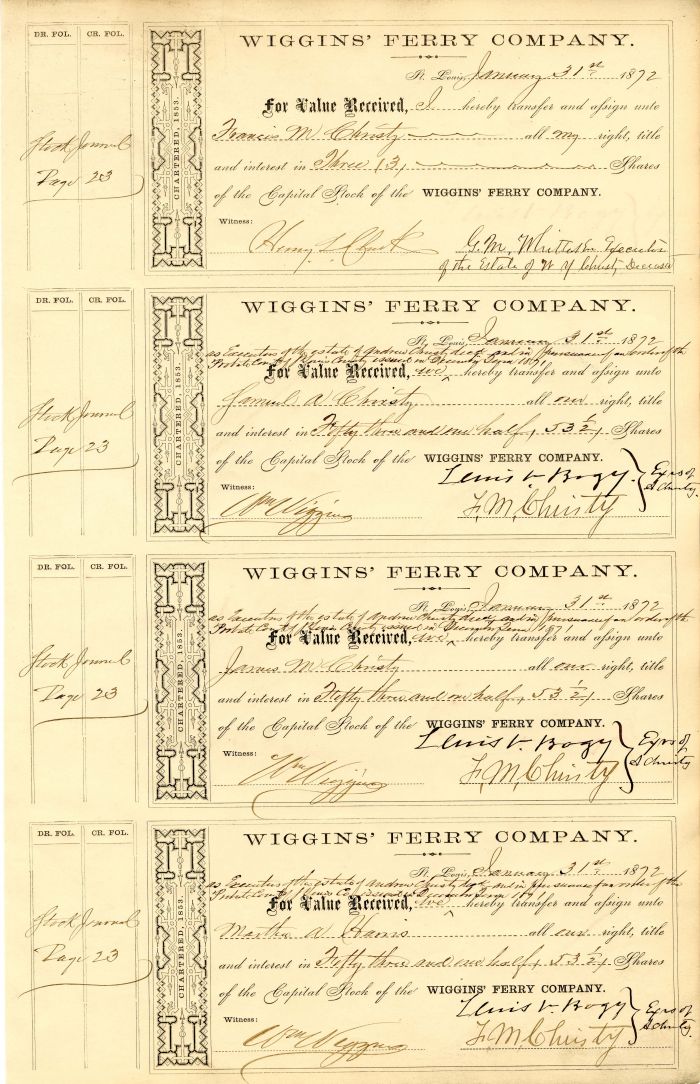 DR. FOL. CR. FOL.
Stock Journal
Page 23
CHARTERED, 1853.
WIGGINS' FERRY COMPANY.
St. Louis, January 31st 1872
For Value Received, I hereby transfer and assign unto
Francis M Christy all my right, title
and interest in Three (3) Shares
of the Capital Stock of the WIGGINS' FERRY COMPANY.
Witness:
Henry L Clark G. M. Executor
of the Estate of W Y Christy Deceased
DR. FOL. CR. FOL.
Stock Journal
Page 23
CHARTERED, 1853.
WIGGINS' FERRY COMPANY.
St. Louis, January 31st 1872
as Executors of the estate of Andrew Christy decd and in pursuance of an order of the
Probate Court of St Louis County issued in December Term 1871
For Value Received, we hereby transfer and assign unto
Samuel A Christy all our right, title
and interest in Fifty three and one half, 53 1/2, Shares
of the Capital Stock of the WIGGINS' FERRY COMPANY.
Witness: Lewis V. Bogy Exrs of
Wm Wiggins F. M. Christy A Christy
DR. FOL. CR. FOL.
Stock Journal
Page 23
CHARTERED, 1853.
WIGGINS' FERRY COMPANY.
St. Louis, January 31st 1872
as Executors of the estate of Andrew Christy decd and in pursuance of an order of the
Probate Court of St Louis County issued in December Term 1871
For Value Received, we hereby transfer and assign unto
James M Christy all our right, title
and interest in Fifty three and one half, 53 1/2, Shares
of the Capital Stock of the WIGGINS' FERRY COMPANY.
Witness: Lewis V. Bogy Exrs of
Wm Wiggins F. M. Christy A Christy
DR. FOL. CR. FOL.
Stock Journal
Page 23
CHARTERED, 1853.
WIGGINS' FERRY COMPANY.
St. Louis, January 31st 1872
as Executors of the estate of Andrew Christy decd and in pursuance of an order of the
Probate Court of St Louis Co issued in December Term 1871
For Value Received, we hereby transfer and assign unto
Martha A Harris all our right, title
and interest in Fifty three and one half, 53 1/2, Shares
of the Capital Stock of the WIGGINS' FERRY COMPANY.
Witness: Lewis V. Bogy Exrs of
Wm Wiggins F. M. Christy A Christy